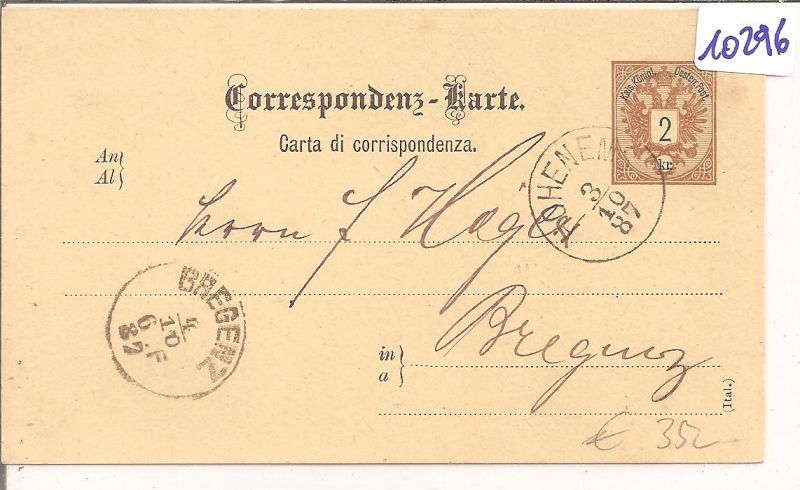 10296
Kais. Königl. Oesterr. Post.
2
kr.
Correspondenz-Karte.
Carta di corrispondenza.
An
Al
HOHENEM
3/10
87
Herrn F Hagen
BREGENZ
4/10
6.F
87
in
a
Bregenz
(Ital.)
€ 35